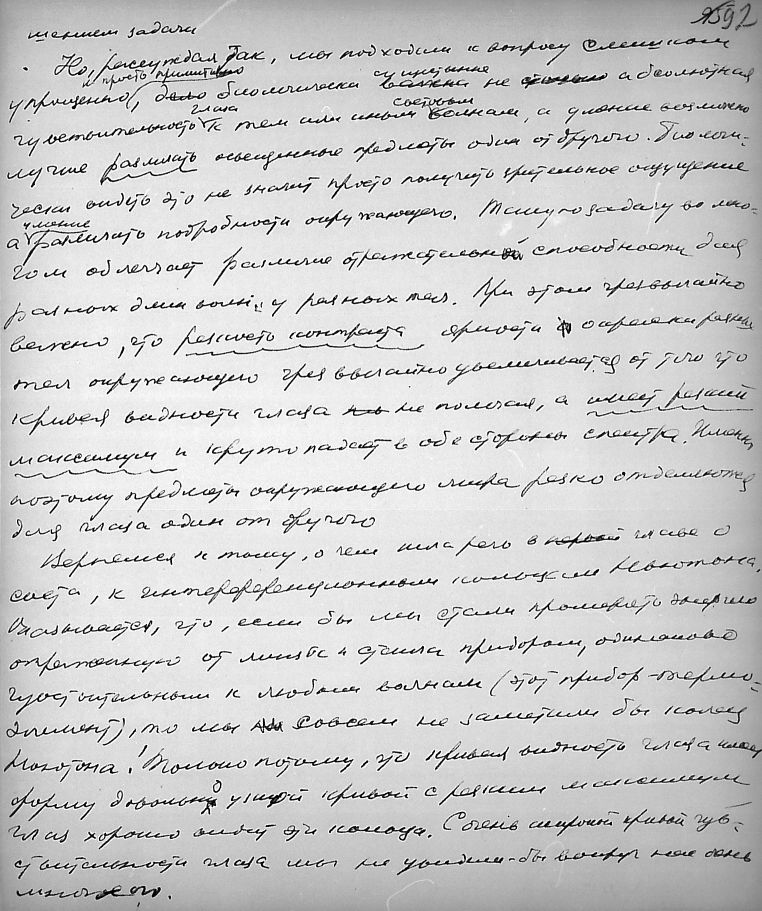 92
шением задачи
Но, рассуждая так, мы подходили к вопросу слишком
и просто примитивно
упрощенно, биологически существенна не абсолютная
чувствительность глаза к тем или иным световым волнам, а умение возможно
лучше различать освещенные предметы один от другого. Биологи-
чески видеть это не значит просто получить зрительное ощущение
а умение различать подробности окружающего. Такую задачу во мно-
гом облегчает различие отражательной способности для
разных длин волн у разных тел. При этом чрезвычайно
важно, что резкость контраста яркости и окраски разных
тел окружающего чрезвычайно увеличивается от того что
кривая видности глаза не пологая, а имеет резкий
максимум и круто падает в обе стороны спектра. Именно
поэтому предметы окружающего мира резко отделяются
для глаза один от другого
Вернемся к тому, о чем шла речь в первой главе о
свете, к интерференционным кольцам Ньютона.
Оказывается, что, если бы мы стали промерять энергию
отраженную от линзы и стекла прибором, одинаково
чувствительным к любым волнам (этот прибор - термо-
элемент), то мы совсем не заметили бы колец
Ньютона! Только потому, что кривая видность глаза имеет
форму довольно узкой кривой с резким максимумом
глаз хорошо видит эти кольца. С очень широкой кривой чув-
ствительности глаза мы не увидели-бы вокруг нас очень
многого.